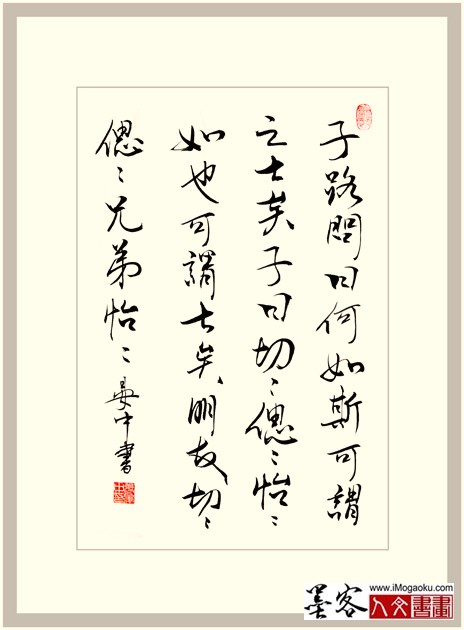 子路問曰何如斯可謂
之士矣子曰切〻偲〻怡〻
如也可謂士矣朋友切〻
偲〻兄弟怡〻 中書
墨客
www.iMogaoku.com
人文書畫